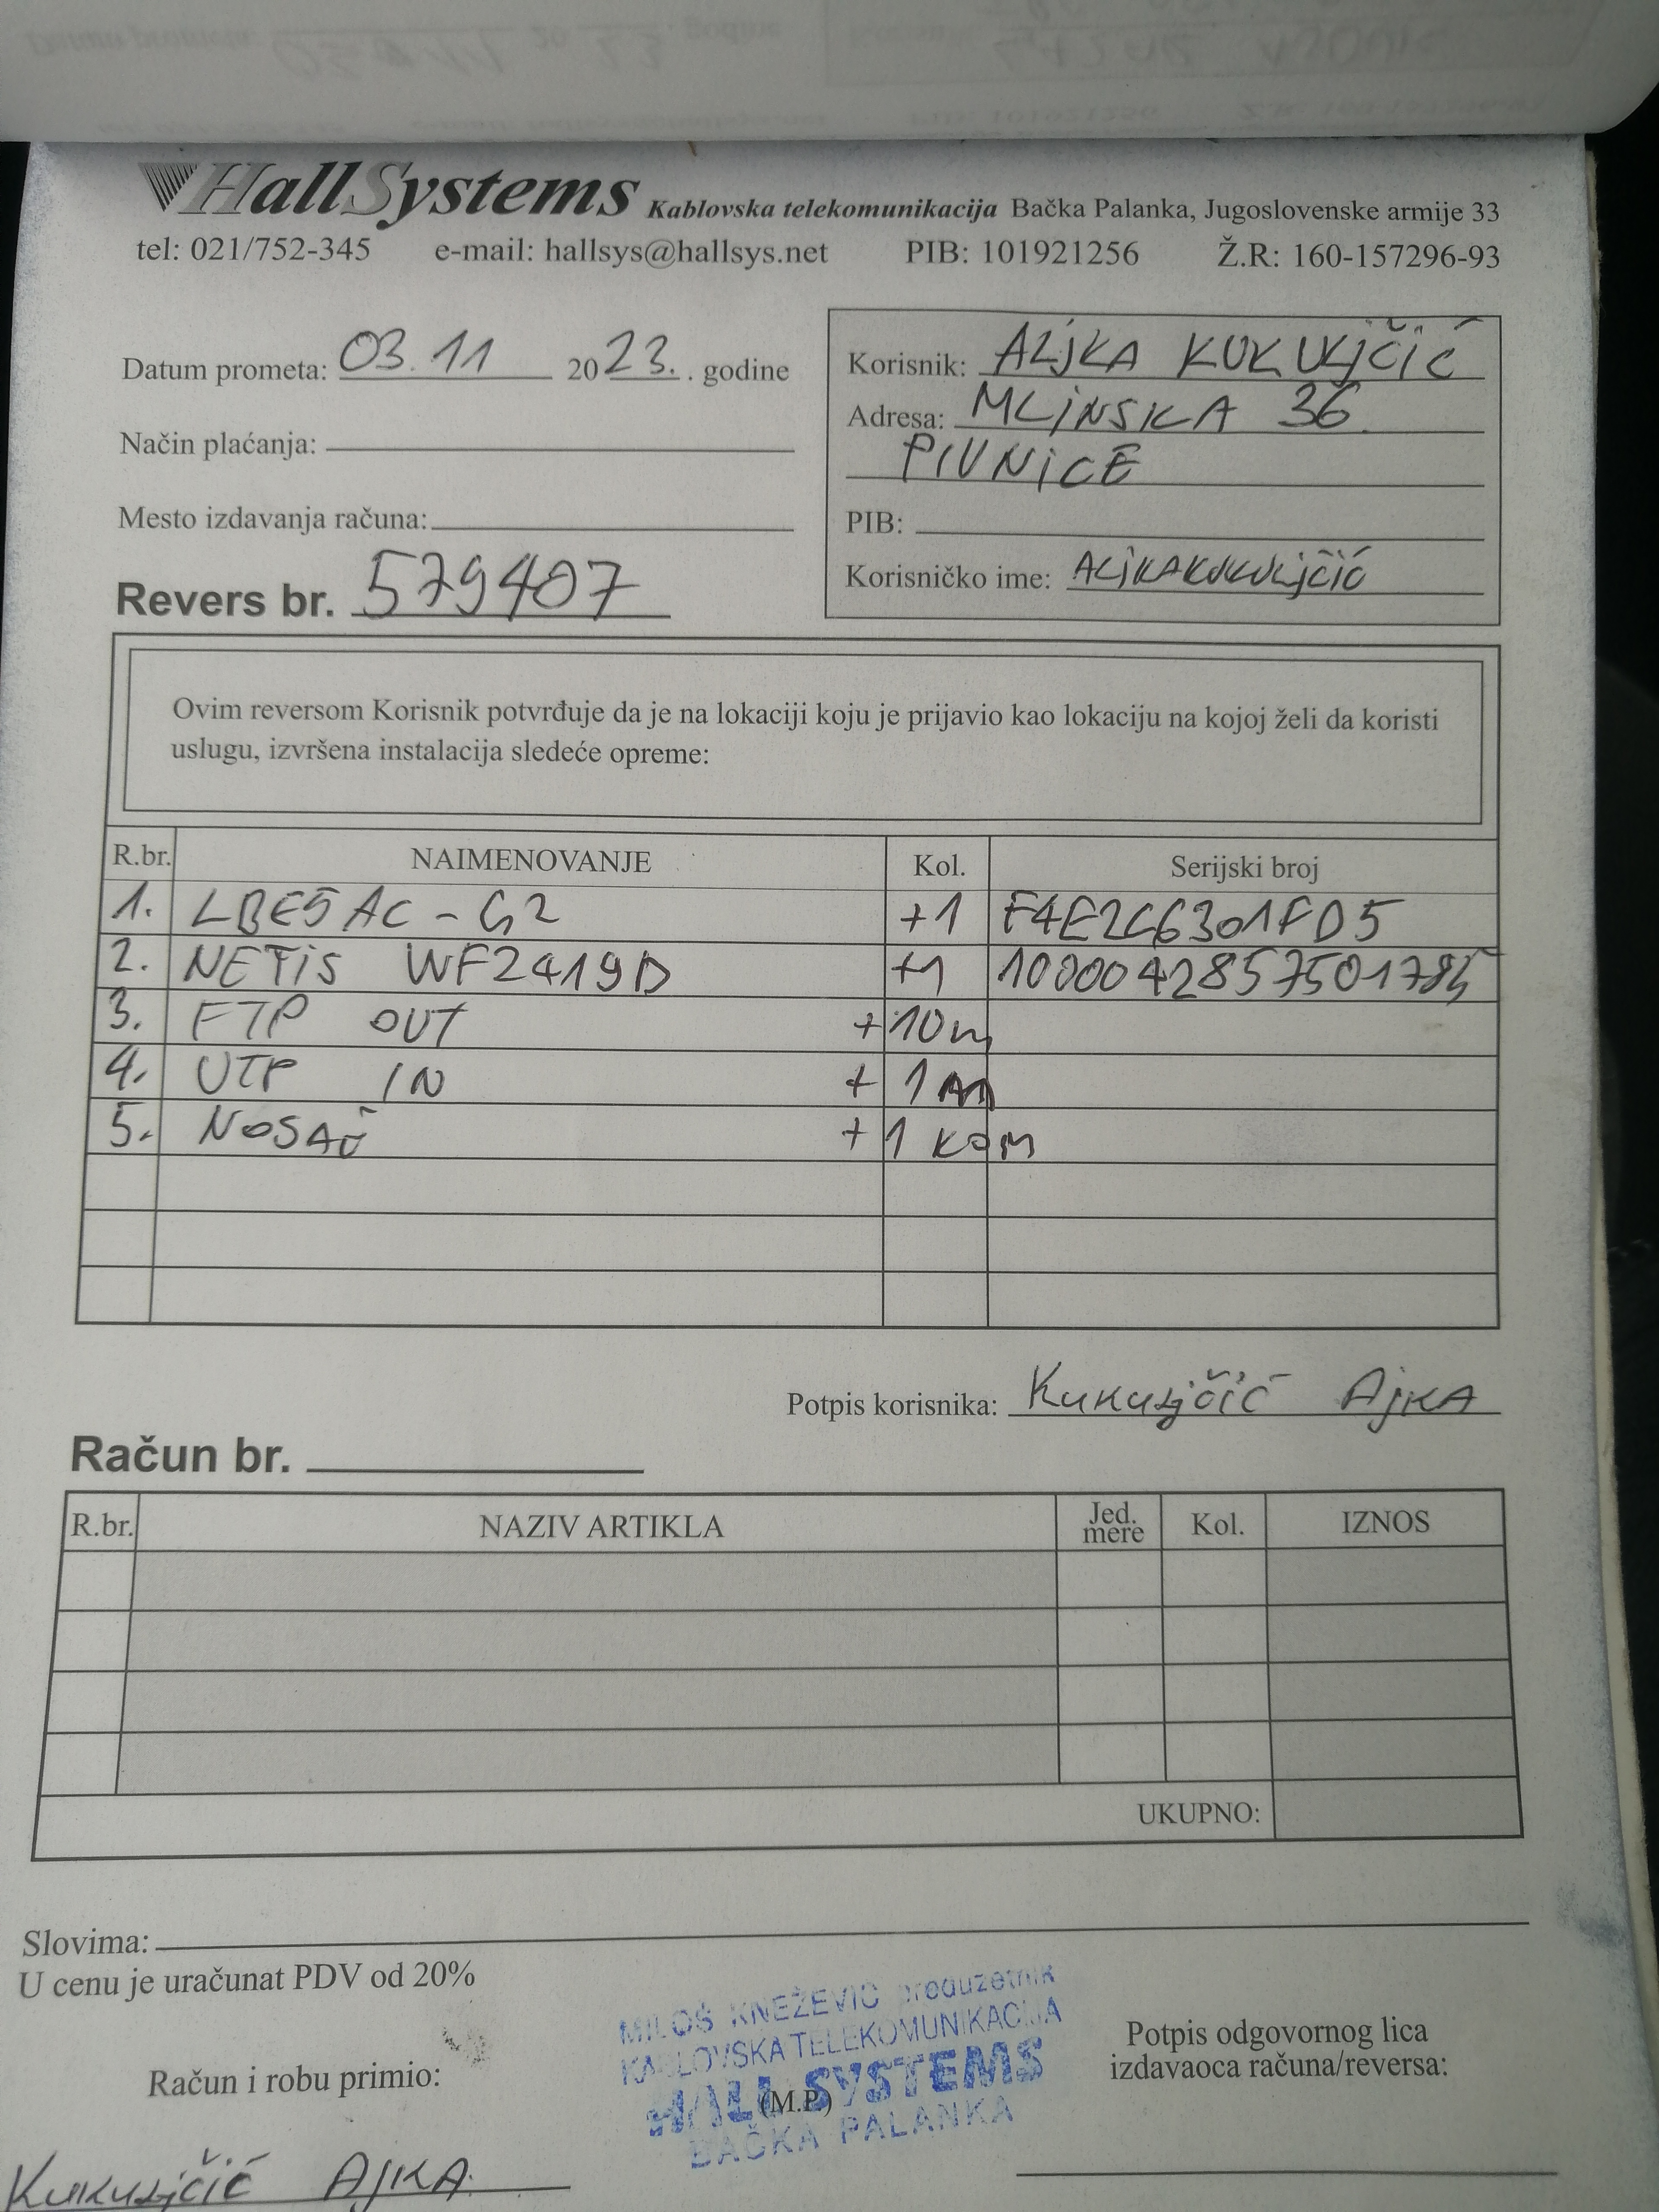 HallSystems Kablovska telekomunikacija Bačka Palanka, Jugoslovenske armije 33
tel: 021/752-345 e-mail: hallsys@hallsys.net PIB: 101921256 Ž.R: 160-157296-93
Datum prometa: 03.11 2023. . godine
Način plaćanja:
Mesto izdavanja računa:
Revers br. 579407
Korisnik: ALJKA KUKULJČIĆ
Adresa: MLINSKA 36
PIVNICE
PIB:
Korisničko ime: ALJKAKUKULJČIĆ
Ovim reversom Korisnik potvrđuje da je na lokaciji koju je prijavio kao lokaciju na kojoj želi da koristi
uslugu, izvršena instalacija sledeće opreme:
R.br. NAIMENOVANJE Kol. Serijski broj
1. LBE5AC-G2 +1 F4E2C6301FD5
2. NETIS WF2419D +1
3. FTP OUT +10m
4. UTP IN + 1m
5. NOSAČ + 1 KOM
Potpis korisnika: Kukuljčić AjKA
Račun br.
R.br. NAZIV ARTIKLA Jed. mere Kol. IZNOS
UKUPNO:
Slovima:
U cenu je uračunat PDV od 20%
Račun i robu primio:
Kukuljčić AjKA
MILOŠ KNEŽEVIĆ preduzetnik
KABLOVSKA TELEKOMUNIKACIJA
HALL SYSTEMS
(M.P.)
BAČKA PALANKA
Potpis odgovornog lica
izdavaoca računa/reversa: